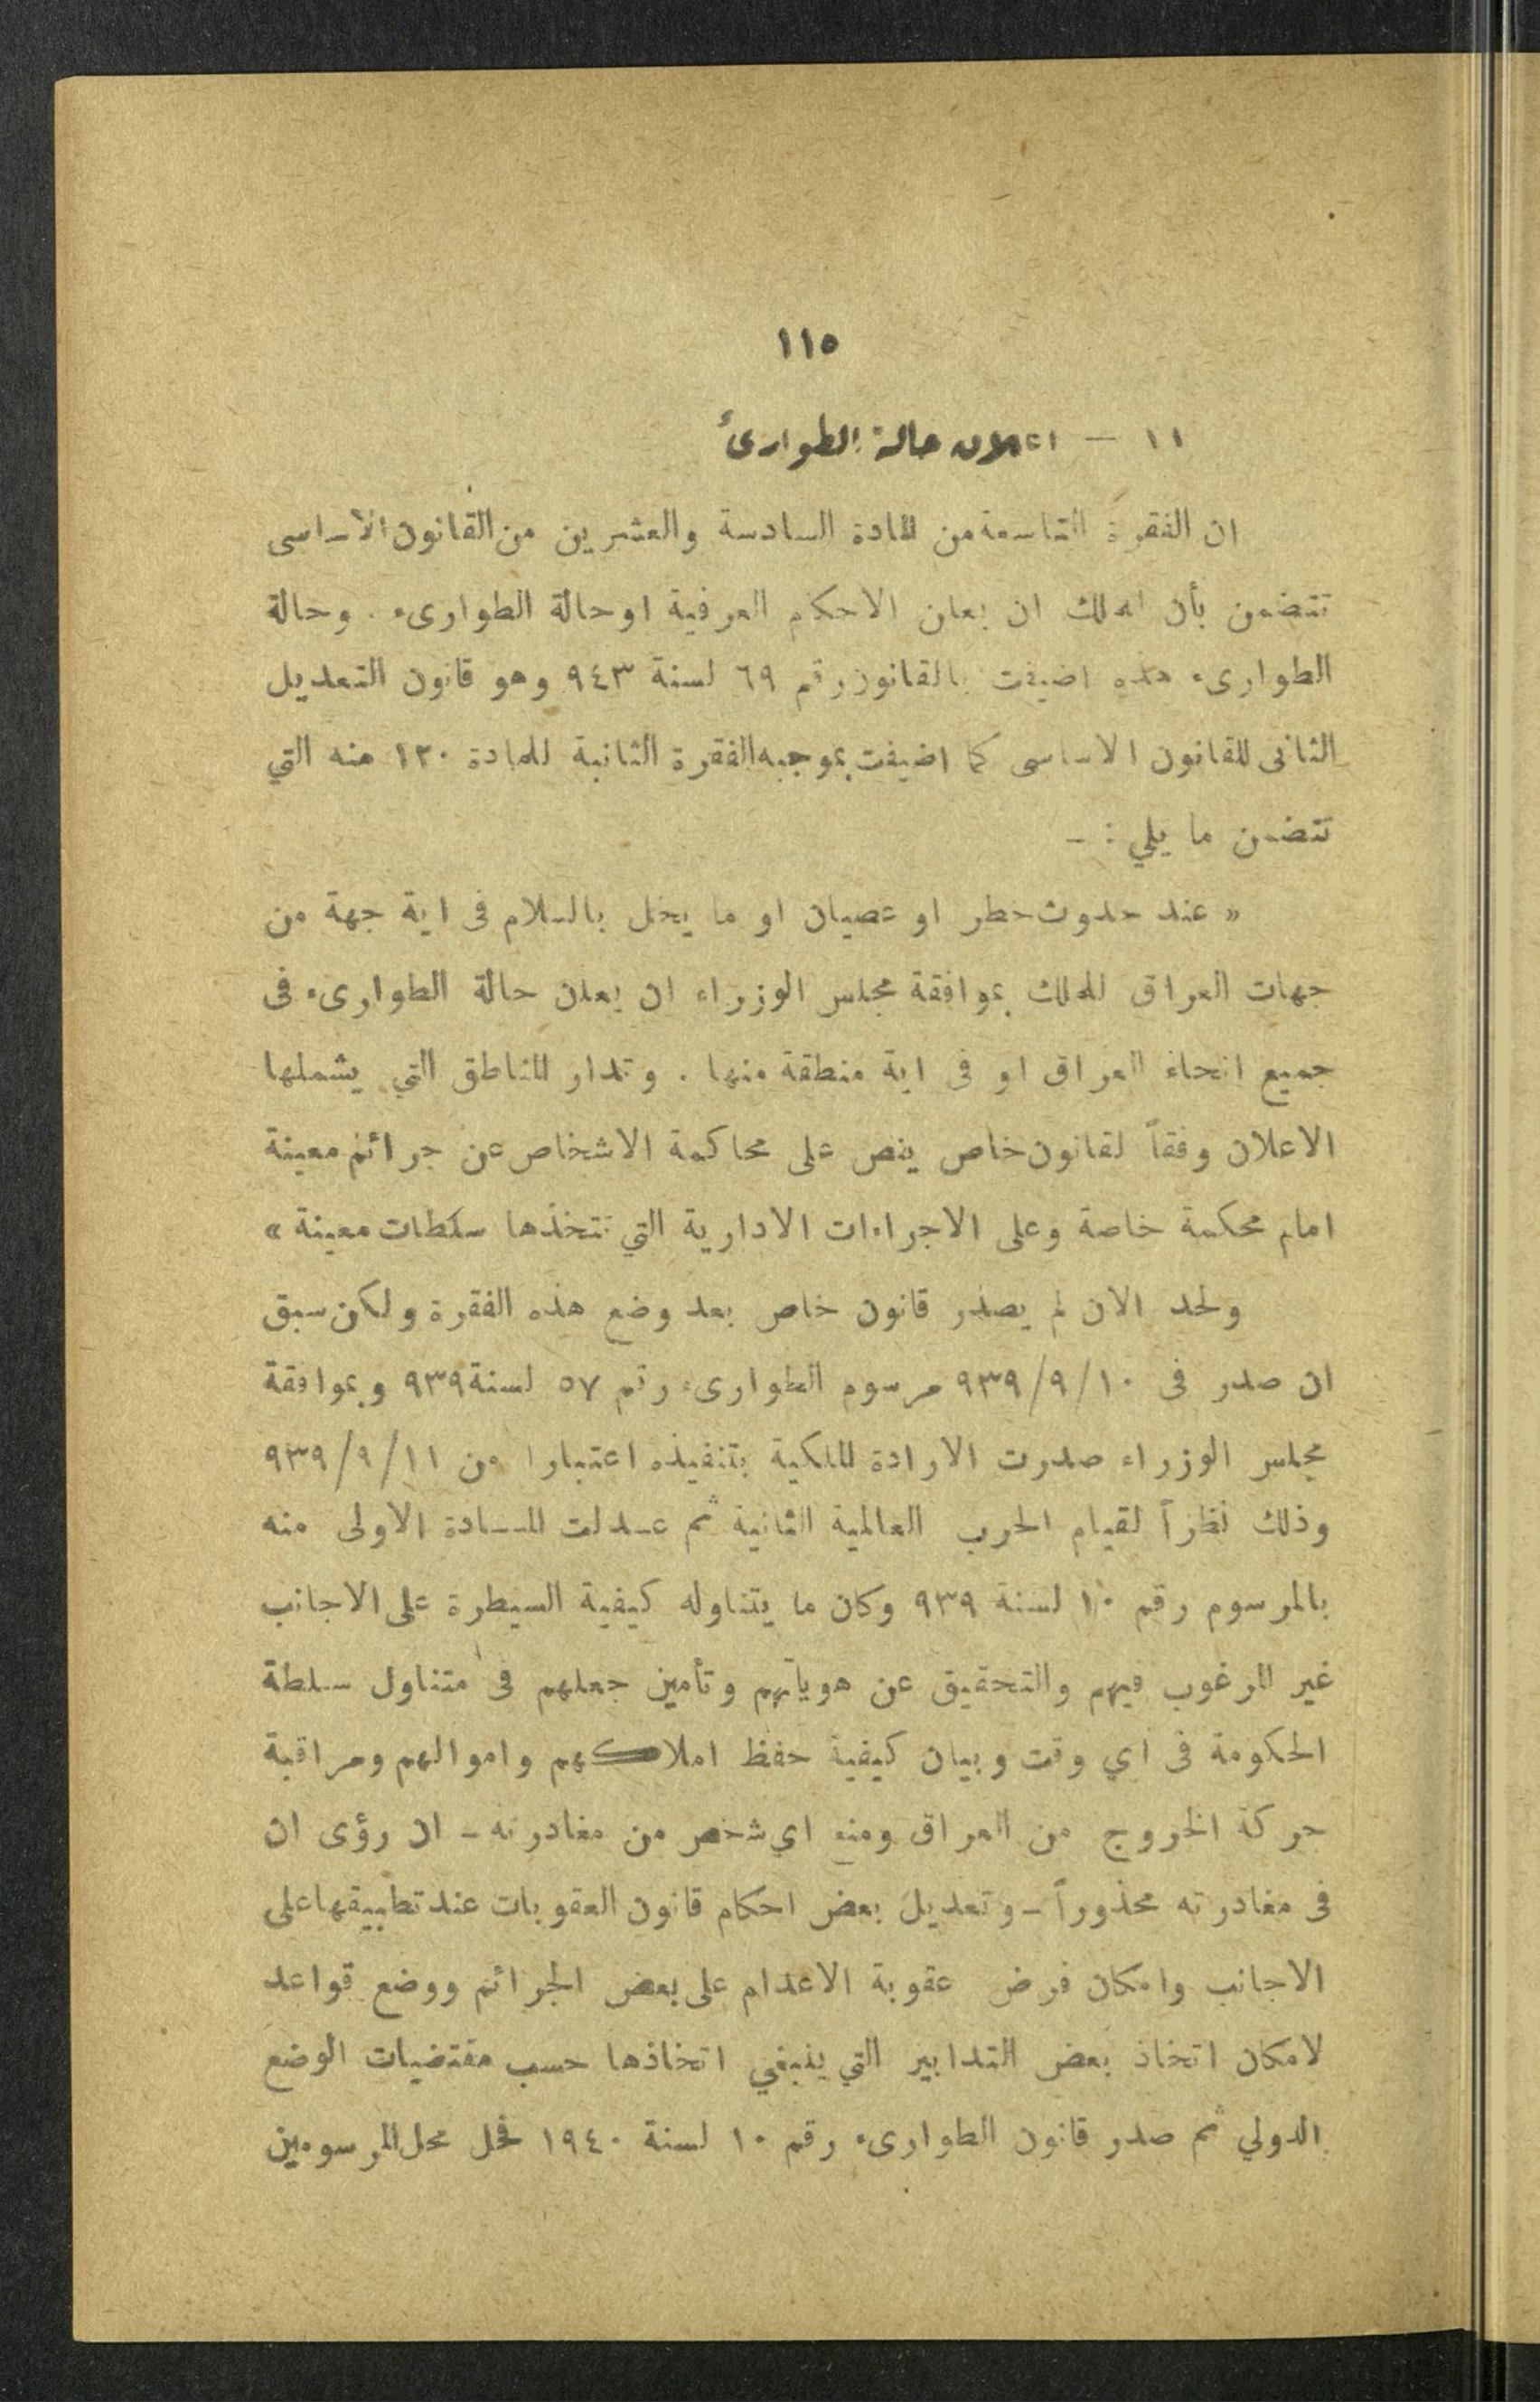 ١١٥
١١ — اعلان حالة الطوارئ
ان الفقرة التاسعة من المادة السادسة والعشرين من القانون الاساسى
تتضمن بأن للملك ان يعلن الاحكام العرفية او حالة الطوارىء . وحالة
الطوارىء هذه اضيفت بالقانون رقم ٦٩ لسنة ٩٤٣ وهو قانون التعديل
الثانى للقانون الاساسى كما اضيفت بموجبه الفقرة الثانية للمادة ١٢٠ منه التي
تتضمن ما يلي : -
« عند حدوث خطر او عصيان او ما يخل بالسلام فى اية جهة من
جهات العراق للملك بموافقة مجلس الوزراء ان يعلن حالة الطوارىء فى
جميع انحاء العراق او فى اية منطقة منها . وتدار المناطق التي يشملها
الاعلان وفقاً لقانون خاص ينص على محاكمة الاشخاص عن جرائم معينة
امام محكمة خاصة وعلى الاجراءات الادارية التي تتخذها سلطات معينة »
ولحد الان لم يصدر قانون خاص بعد وضع هذه الفقرة ولكن سبق
ان صدر فى ١٠/٩/٩٣٩ مرسوم الطوارىء رقم ٥٧ لسنة ٩٣٩ وبموافقة
مجلس الوزراء صدرت الارادة الملكية بتنفيذه اعتبارا من ١١/٩/٩٣٩
وذلك نظراً لقيام الحرب العالمية الثانية ثم عدلت المادة الاولى منه
بالمرسوم رقم ١٠ لسنة ٩٣٩ وكان ما يتناوله كيفية السيطرة على الاجانب
غير المرغوب فيهم والتحقيق عن هوياتهم وتأمين جعلهم فى متناول سلطة
الحكومة فى اي وقت وبيان كيفية حفظ املاكهم واموالهم ومراقبة
حركة الخروج من العراق ومنع اي شخص من مغادرته - ان رؤى ان
فى مغادرته محذوراً - وتعديل بعض احكام قانون العقوبات عند تطبيقها على
الاجانب وامكان فرض عقوبة الاعدام على بعض الجرائم ووضع قواعد
لامكان اتخاذ بعض التدابير التي ينبغي اتخاذها حسب مقتضيات الوضع
الدولي ثم صدر قانون الطوارىء رقم ١٠ لسنة ١٩٤٠ فحل محل المرسومين